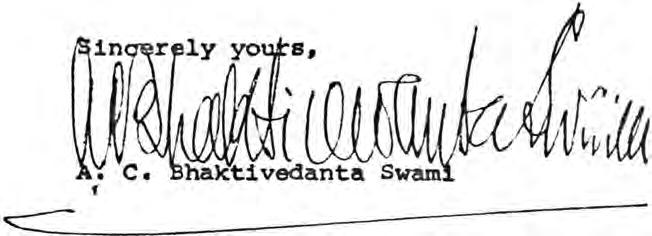 Sincerely yours,
ACBhaktivedanta Swami
A. C. Bhaktivedanta Swami